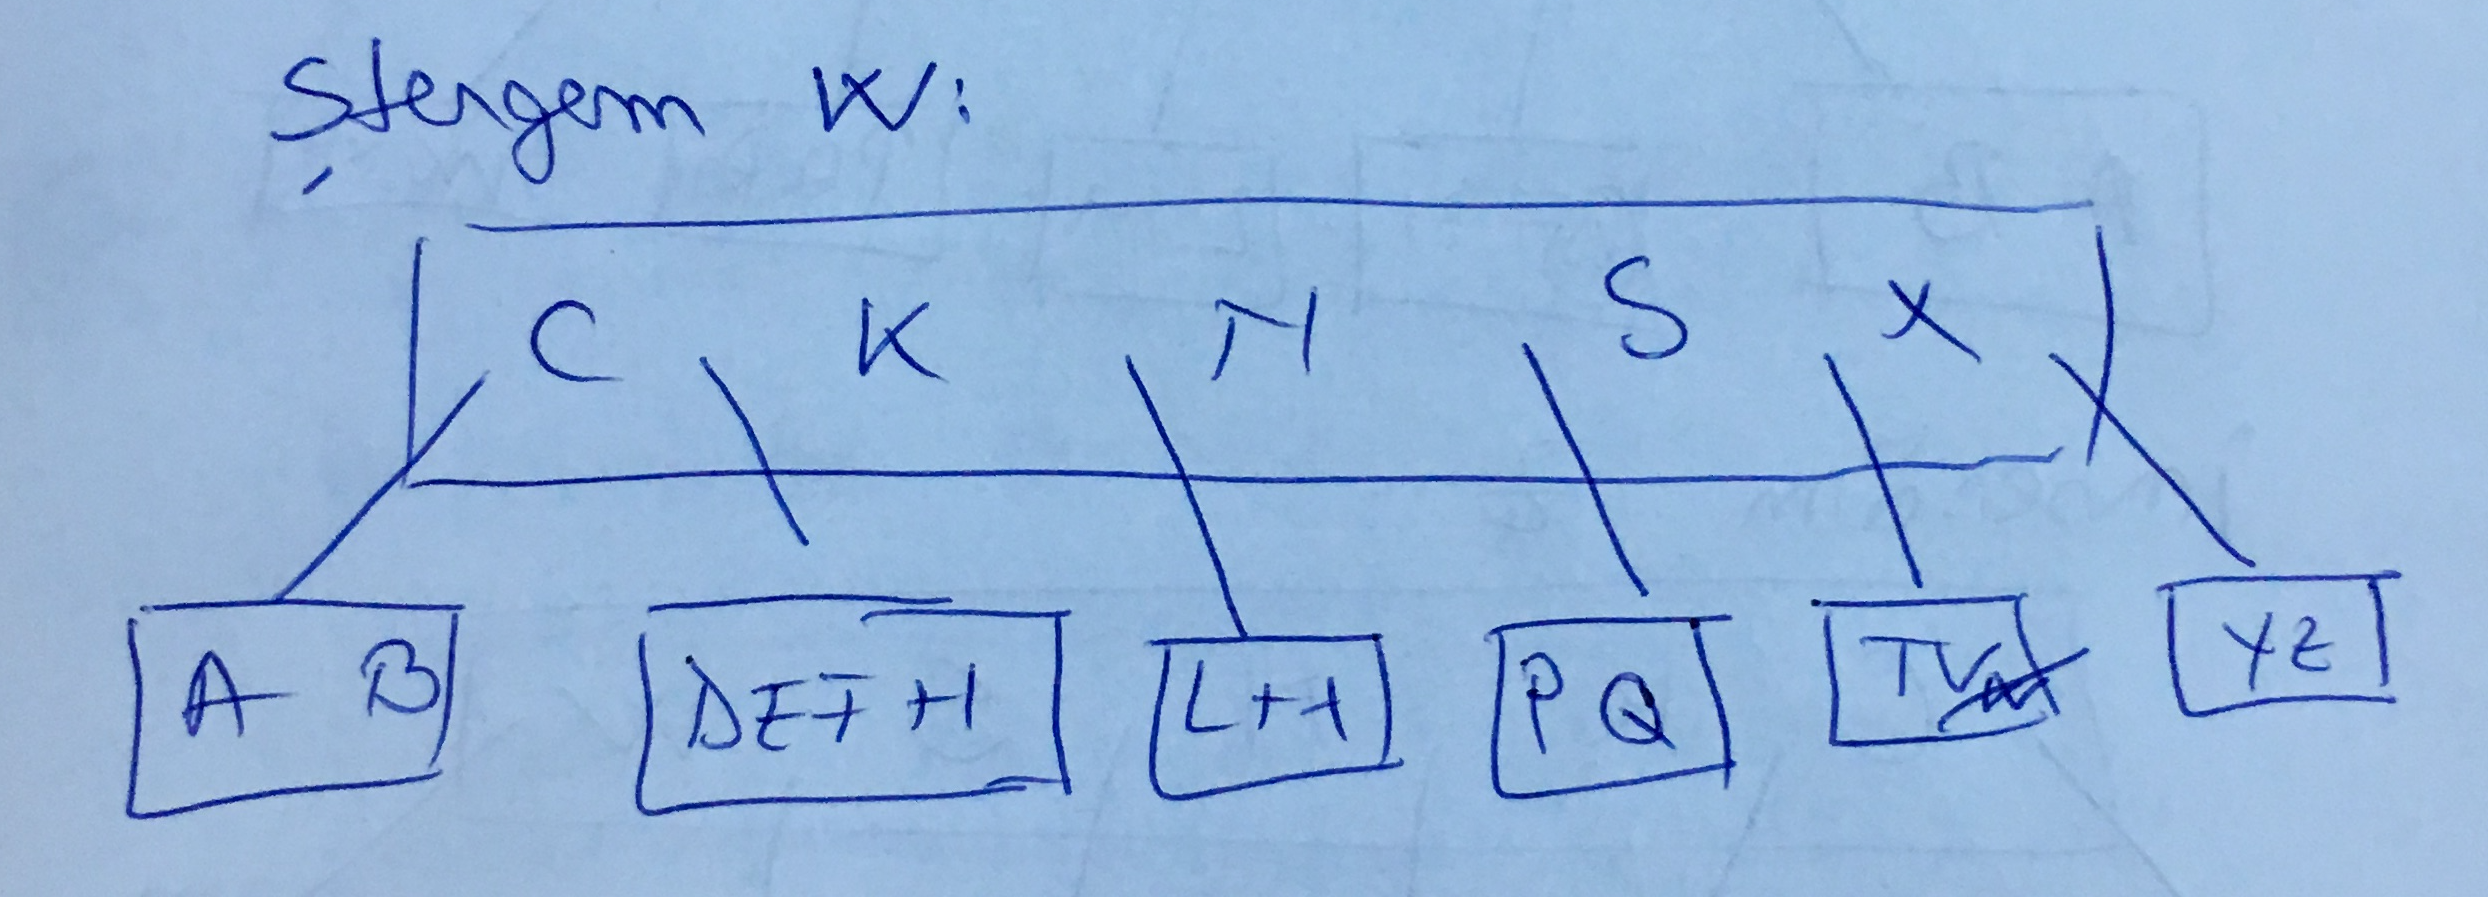 Ștergem W:
C K N S X
A B DEFH LM PQ TVW YZ